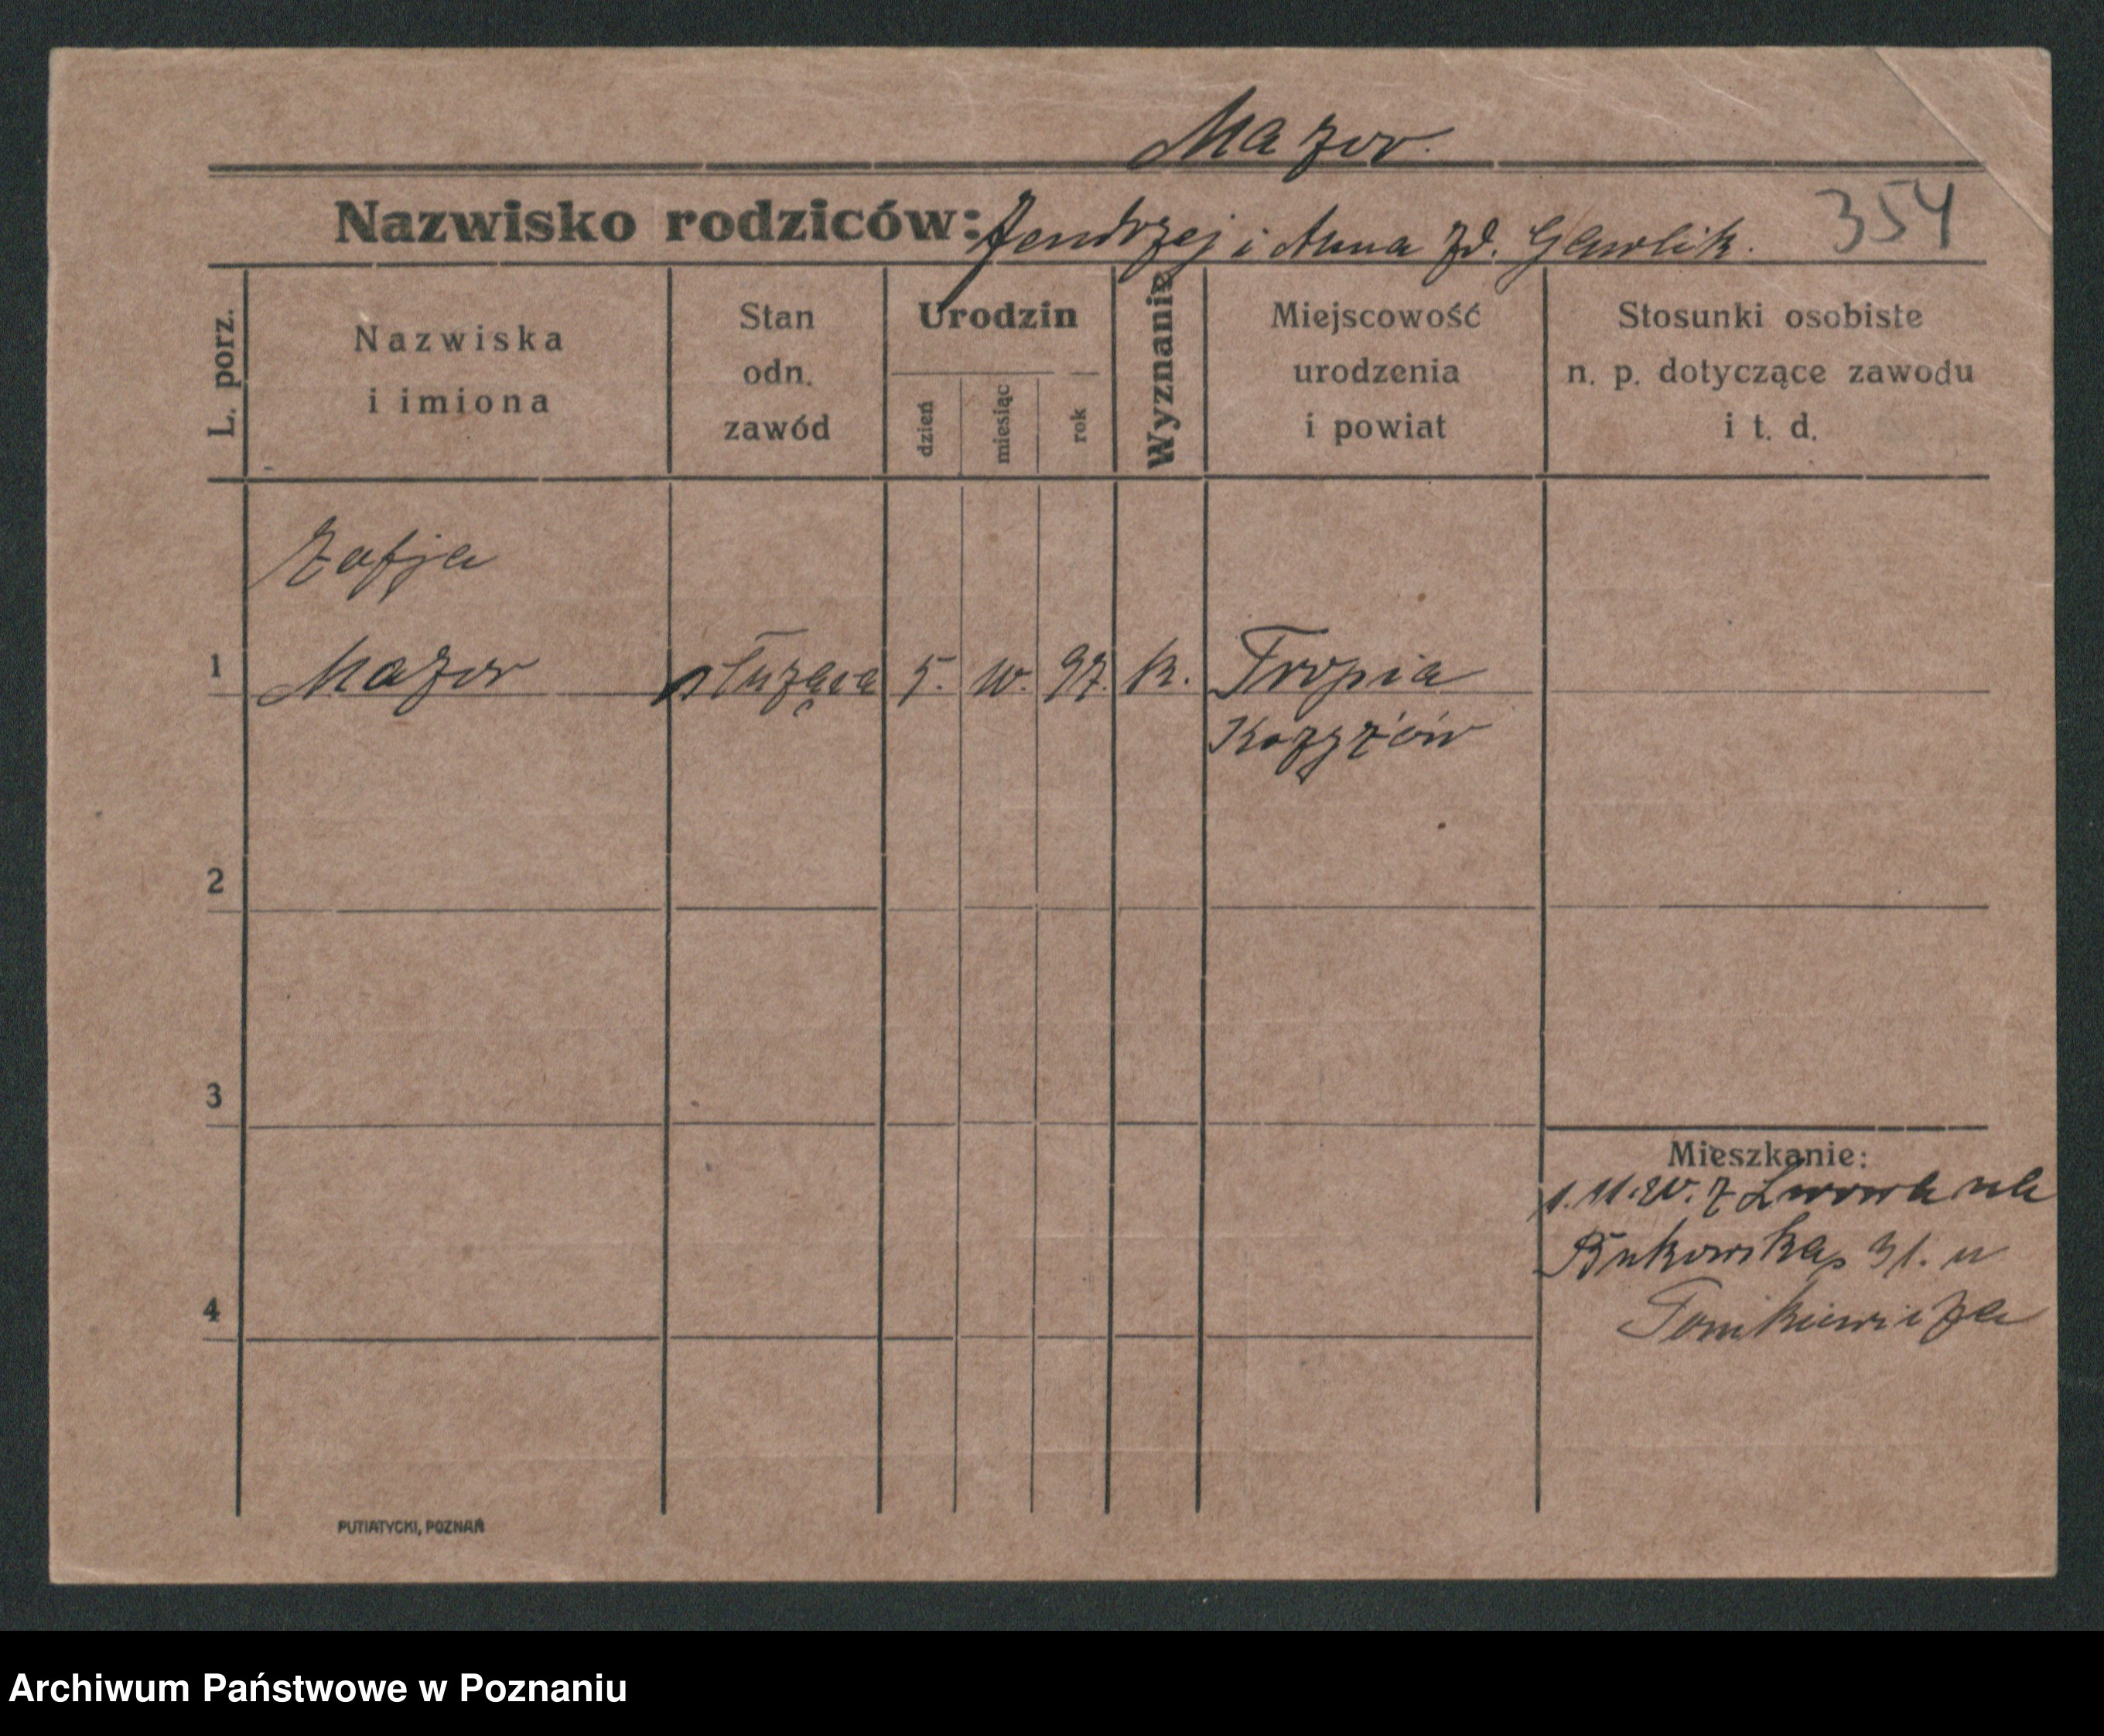 Mazor.
Nazwisko rodziców: Jendrzej i Anna zd. Gawlik. 354
L. porz.
Nazwiska
i imiona
Stan
odn.
zawód
Urodzin
dzień
miesiąc
rok
Wyznanie
Miejscowość
urodzenia
i powiat
Stosunki osobiste
n. p. dotyczące zawodu
i t. d.
Zofja
1 Mazor służąca 5. 10. 97. k. Tropia
2
3
4
Mieszkanie:
z Lwowa na
Bukowska 31. u
Tomkiewicza
PUTIATYCKI, POZNAŃ
Archiwum Państwowe w Poznaniu